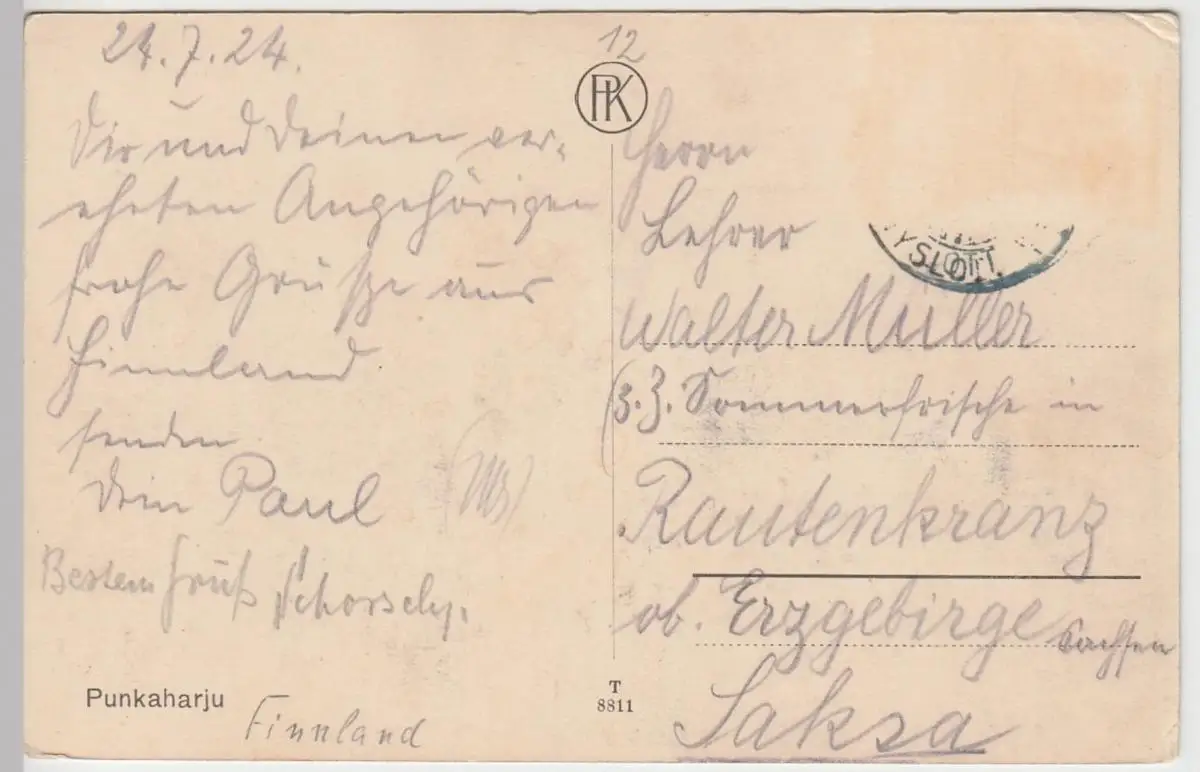 24.7.24.
Dir und Deinen ver-
ehrten Angehörigen
frohe Grüße aus
Finnland
senden
Dein Paul
Besten Gruß
Punkaharju
Finnland
12
PK
T
8811
Herrn
Lehrer
YSLOTT.
Walter Müller
(z. Z. Sommerfrische in
Rautenkranz
ob. Erzgebirge Sachsen
Saksa